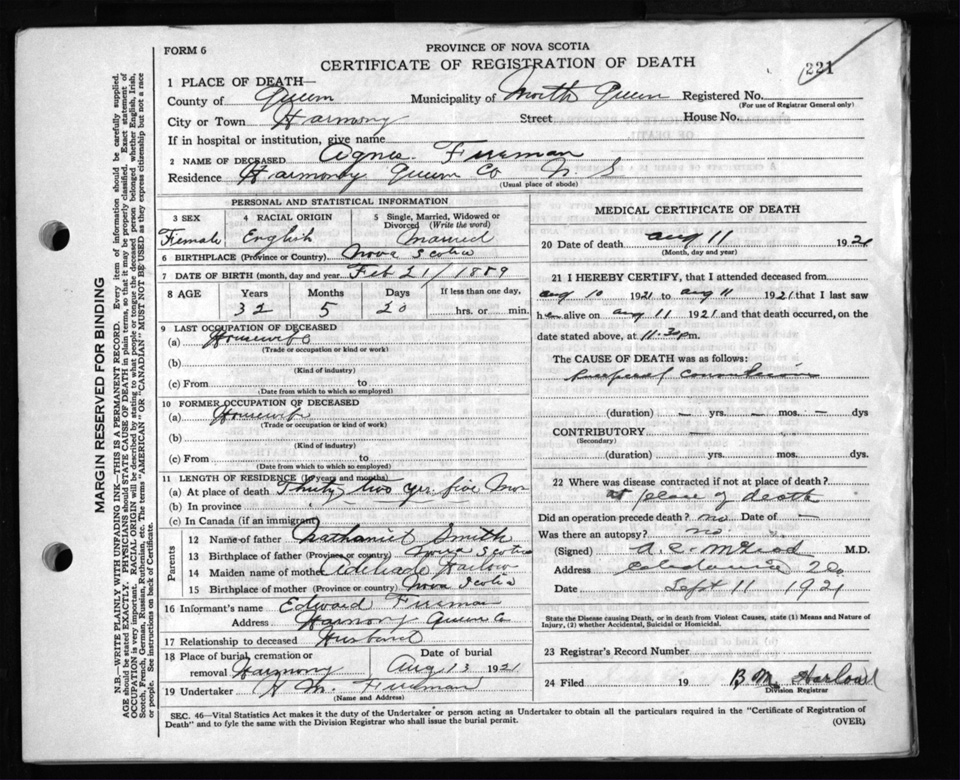 FORM 6
PROVINCE OF NOVA SCOTIA
CERTIFICATE OF REGISTRATION OF DEATH
221
1 PLACE OF DEATH—
County of Queens Municipality of North Queens Registered No.
(For use of Registrar General only)
City or Town Harmony Street House No.
If in hospital or institution, give name
2 NAME OF DECEASED Agnes Freeman
Residence Harmony Queens Co N. S
(Usual place of abode)
PERSONAL AND STATISTICAL INFORMATION
3 SEX 4 RACIAL ORIGIN 5 Single, Married, Widowed or Divorced (Write the word)
Female English Married
6 BIRTHPLACE (Province or Country) Nova Scotia
7 DATE OF BIRTH (month, day and year) Feb 21/1889
8 AGE Years Months Days If less than one day,
32 5 20 hrs. or min.
9 LAST OCCUPATION OF DECEASED
(a) Housewife
(Trade or occupation or kind or work)
(b)
(Kind of industry)
(c) From to
(Date from which to which so employed)
10 FORMER OCCUPATION OF DECEASED
(a) Housewife
(Trade or occupation or kind or work)
(b)
(Kind of industry)
(c) From to
(Date from which to which so employed)
11 LENGTH OF RESIDENCE (In years and months)
(a) At place of death Thirty two yrs. five Mos
(b) In province
(c) In Canada (if an immigrant)
Parents
12 Name of father Nathaniel Smith
13 Birthplace of father (Province or country) Nova Scotia
14 Maiden name of mother Adelaide Harlow
15 Birthplace of mother (Province or country) Nova Scotia
16 Informant's name Edward Freeman
Address Harmony Queens Co
17 Relationship to deceased Husband
18 Place of burial, cremation or removal Harmony Date of burial Aug 13 1921
19 Undertaker H M. Freeman
(Name and Address)
MEDICAL CERTIFICATE OF DEATH
20 Date of death Aug 11 1921
(Month, day and year)
21 I HEREBY CERTIFY, that I attended deceased from
Aug 10 1921 to Aug 11 1921 that I last saw
her alive on Aug 11 1921 and that death occurred, on
date stated above, at 11.30 pm.
The CAUSE OF DEATH was as follows:
Puerperal Convulsions
(duration) — yrs. — mos. — dys
CONTRIBUTORY
(Secondary)
(duration) yrs. mos. dys.
22 Where was disease contracted if not at place of death?
at place of death
Did an operation precede death? no Date of —
Was there an autopsy? no.
(Signed) M.D.
Address Caledonia
Date Sept 11 1921
State the Disease causing Death, or in death from Violent Causes, state (1) Means and Nature of
Injury, (2) whether Accidental, Suicidal or Homicidal.
23 Registrar's Record Number
24 Filed 19 B M. Harlow
Division Registrar
SEC. 46—Vital Statistics Act makes it the duty of the Undertaker or person acting as Undertaker to obtain all the particulars required in the "Certificate of Registration of
Death" and to fyle the same with the Division Registrar who shall issue the burial permit.
(OVER)
MARGIN RESERVED FOR BINDING
N.B.—WRITE PLAINLY WITH UNFADING INK—THIS IS A PERMANENT RECORD. Every item of information should be carefully supplied.
AGE should be stated EXACTLY. PHYSICIANS should STATE CAUSE OF DEATH in plain terms, so that it may be properly classified. Exact statement of
OCCUPATION is very important. RACIAL ORIGIN will be described by stating to what people or tongue the deceased person belonged whether English, Irish,
Scotch, French, German, Russian, Ruthenian, etc. The terms "AMERICAN" OR "CANADIAN" MUST NOT BE USED as they express citizenship but not a race
or people. See instructions on back of Certificate.